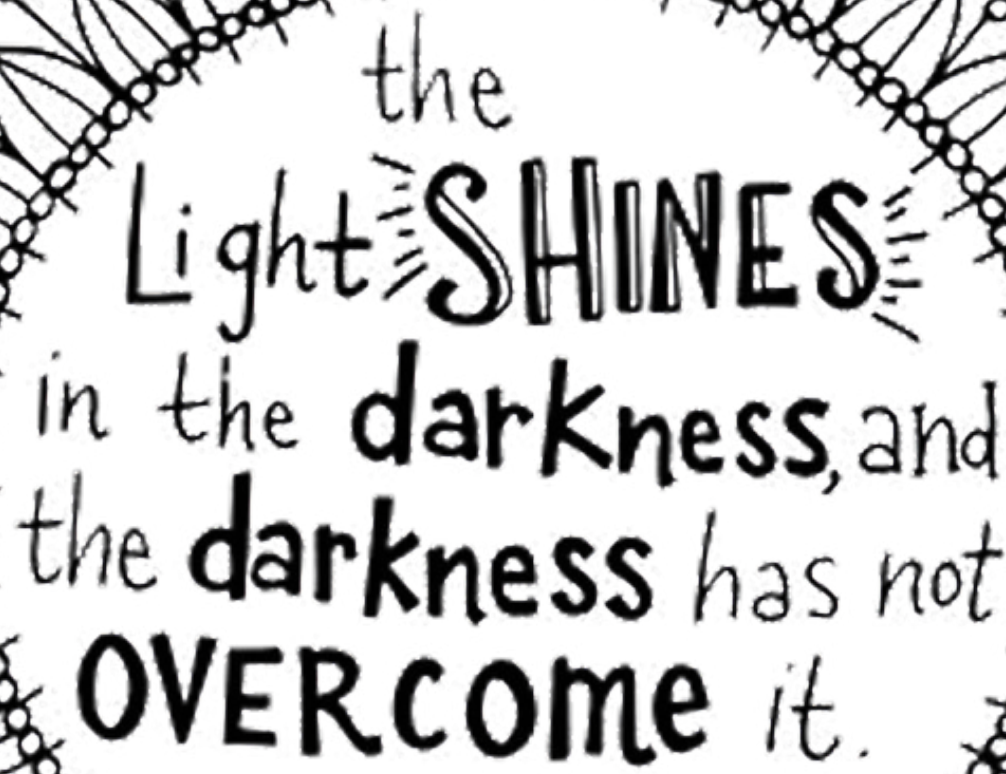 the
Light SHINES
in the darkness, and
the darkness has not
OVERcome it.